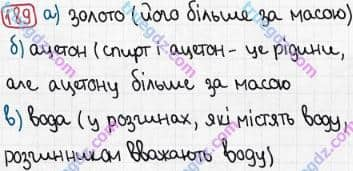 189 а) золото (його більше за масою)
б) ацетон (спирт і ацетон - це рідини,
але ацетону більше за масою
в) вода (у розчинах, які містять воду,
розчинником вважають воду)